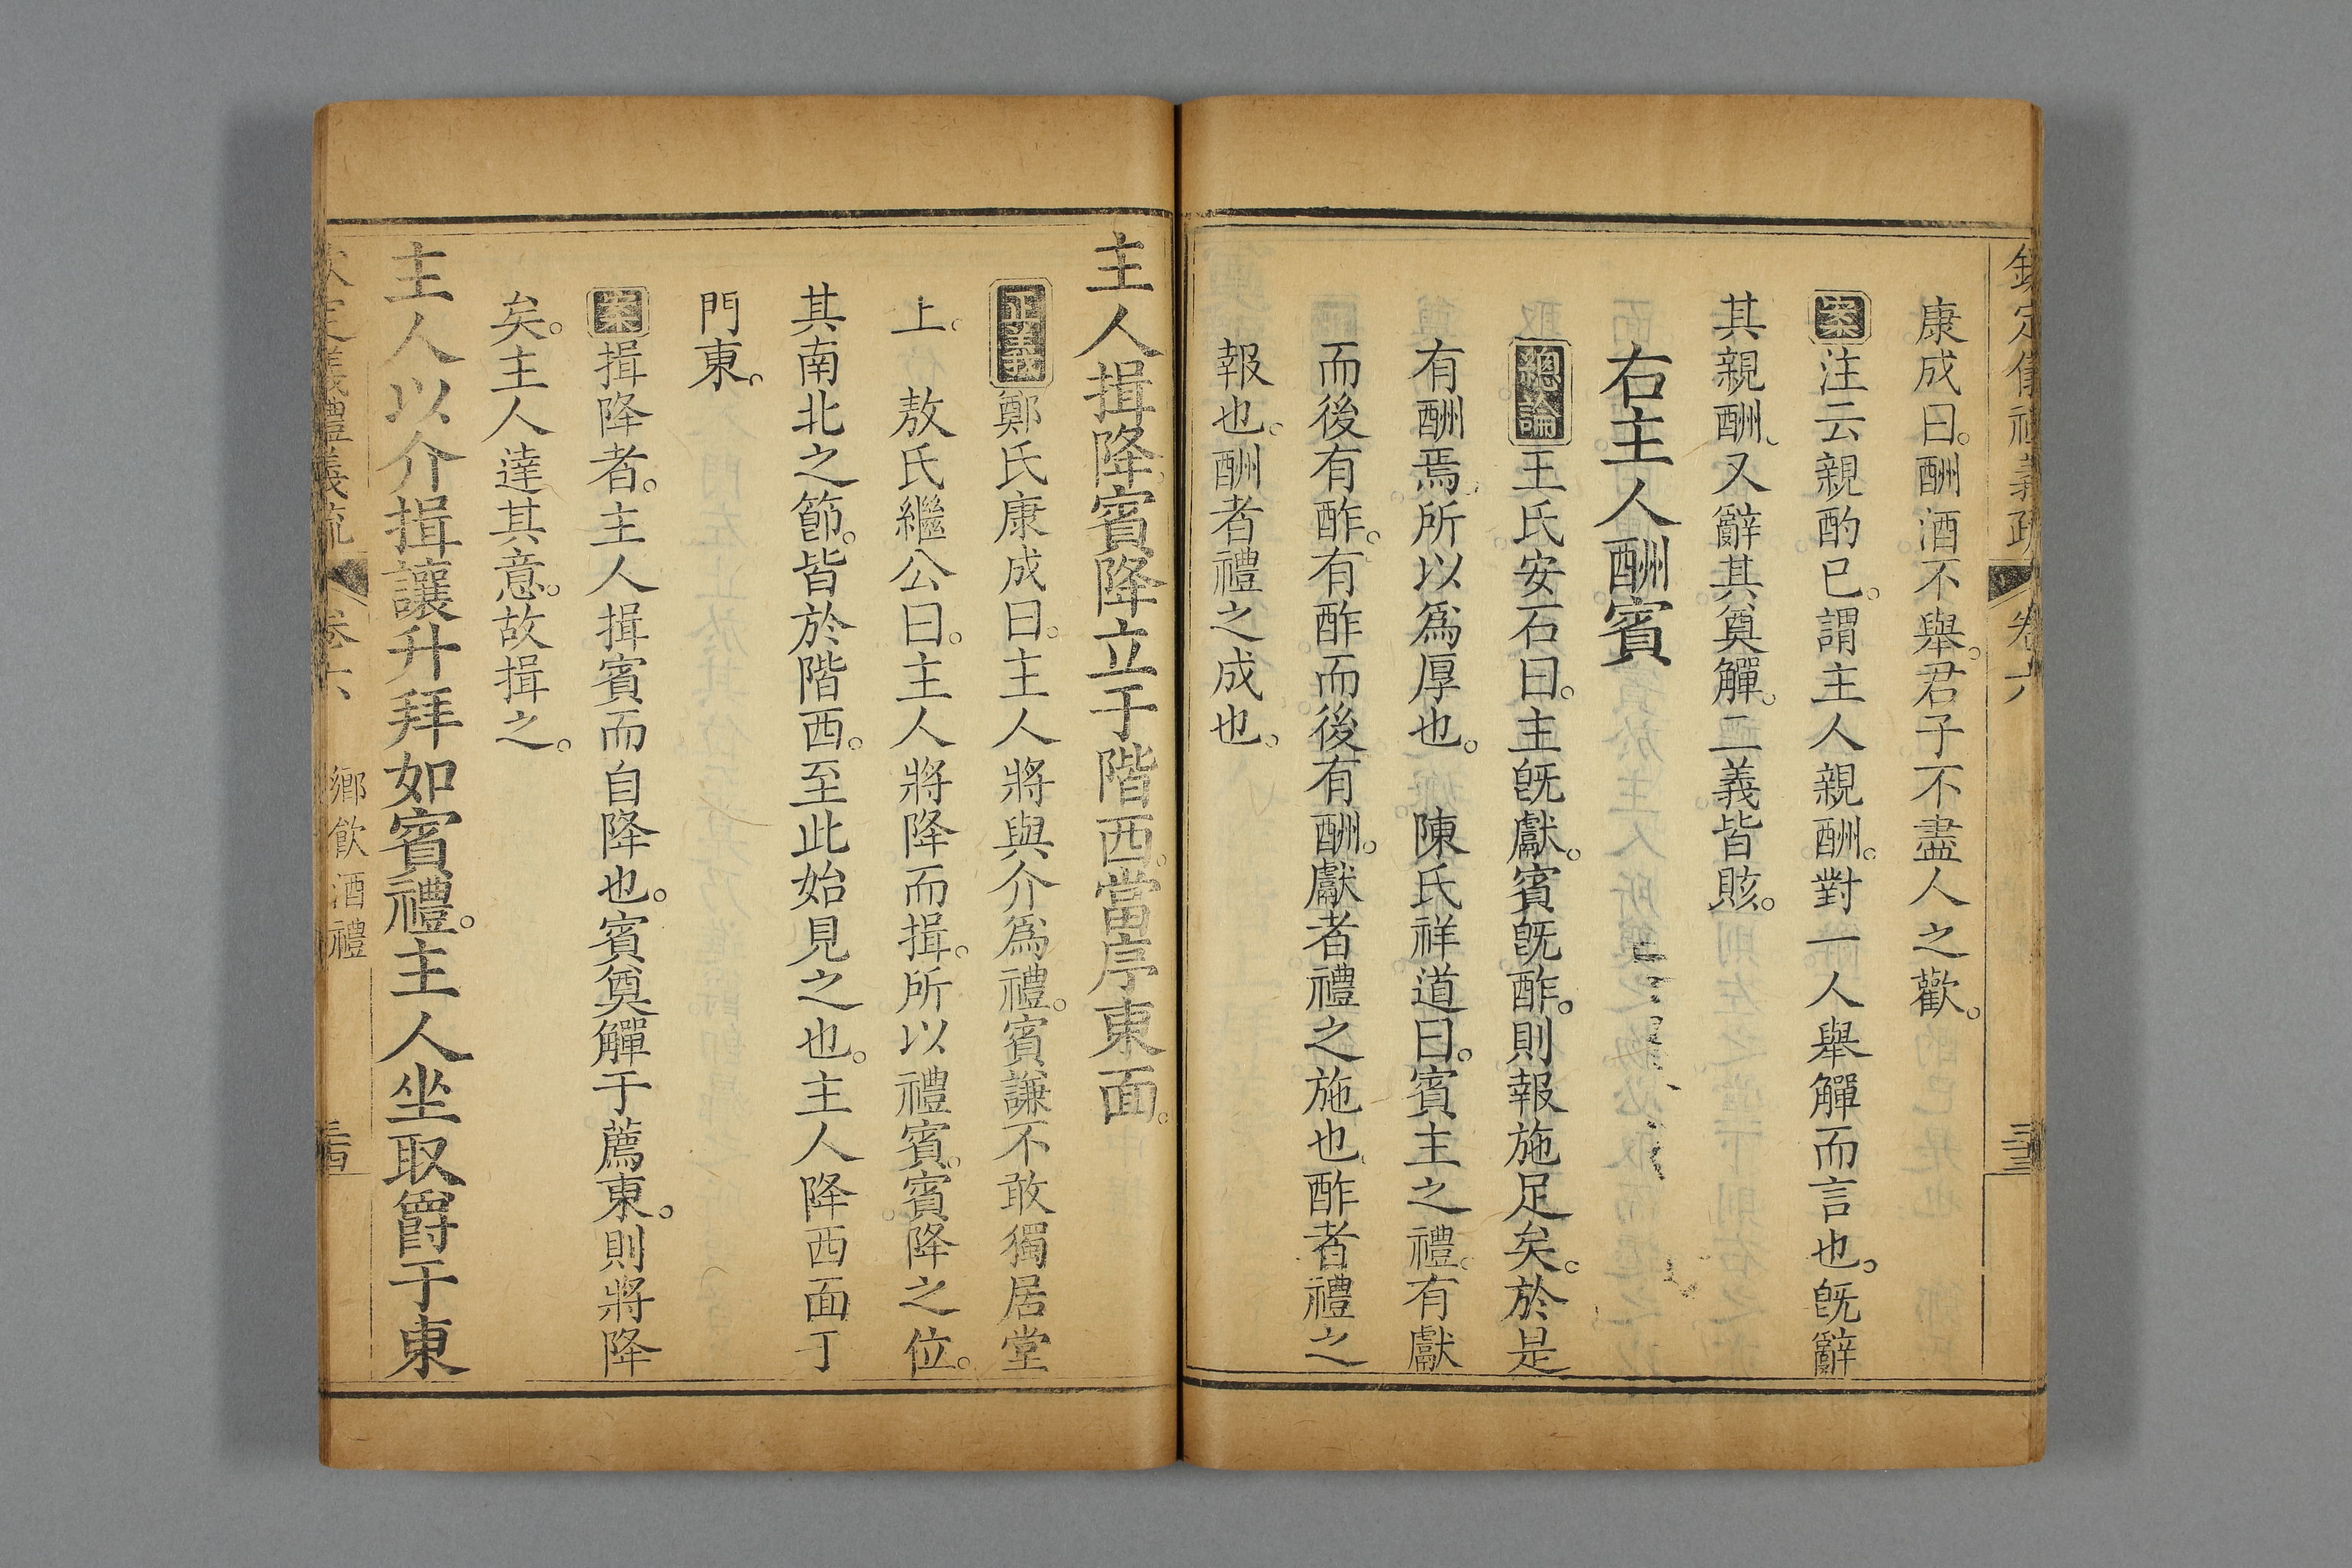 欽定儀禮義疏　卷六
康成曰。酬酒不舉。君子不盡人之歡。
案注云親酌已。謂主人親酬。對一人舉觶而言也。旣辭
其親酬、又辭其奠觶。二義皆賅。
右主人酬賓
總論王氏安石曰。主旣獻。賓旣酢。則報施足矣。於是
有酬焉。所以爲厚也。　陳氏祥道曰。賓主之禮。有獻
而後有酢。有酢而後有酬。獻者禮之施也、酢者禮之
報也。酬者禮之成也。
主人揖降。賓降立于階西。當序東面。
正義鄭氏康成曰。主人將與介爲禮。賓謙不敢獨居堂
上。　敖氏繼公曰。主人將降而揖。所以禮賓。賓降之位。
其南北之節。皆於階西。至此始見之也。主人降西面于
門東。
案揖降者。主人揖賓而自降也。賓奠觶于薦東。則將降
矣。主人達其意。故揖之。
主人以介揖讓升拜如賓禮。主人坐取爵于東
欽定儀禮義疏　卷六　鄉飲酒禮